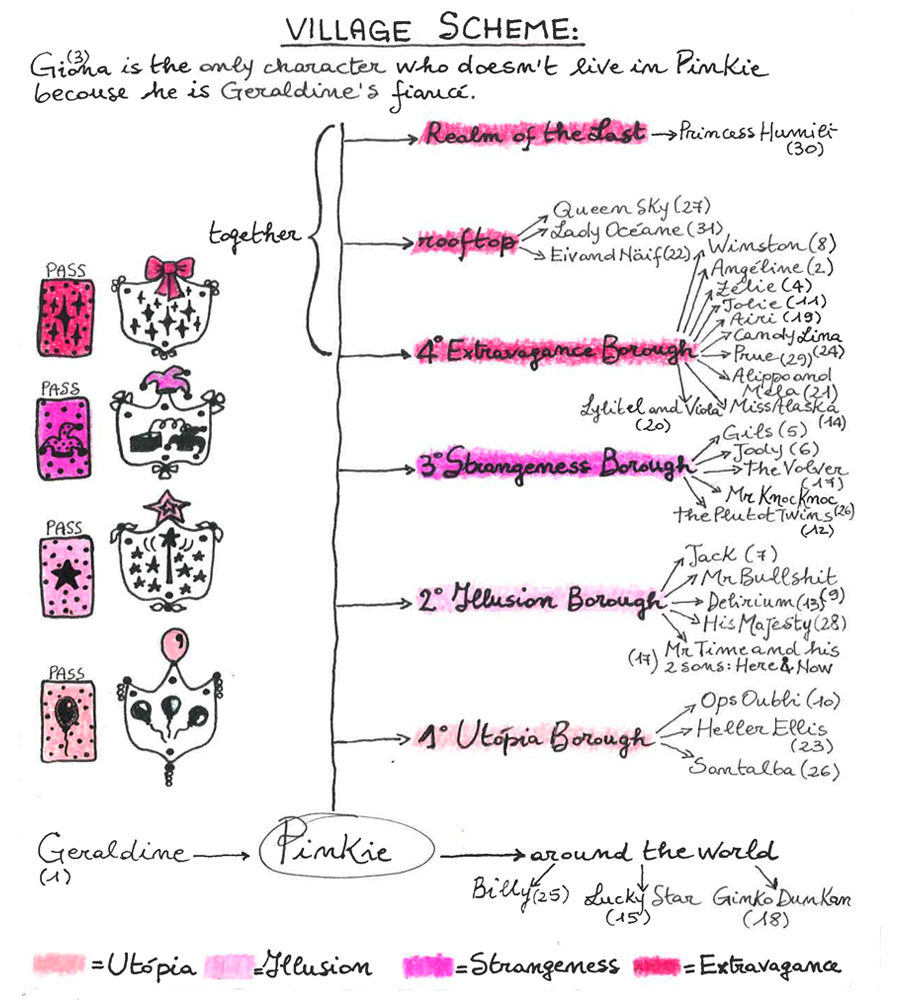 VILLAGE SCHEME:
(3)
Giona is the only character who doesn't live in Pinkie
becouse he is Geraldine's fiancé.
together
Realm of the Last
Princess Humili
(30)
rooftop
Queen Sky (27)
Lady Océane (31)
Eivand Näif (22)
PASS
4° Extravagance Borough
Winston (8)
Angéline (2)
Zélie (4)
Jolie (11)
Airi (19)
Candy Lina
(24)
Prue (29)
Alippo and
Mela (21)
Miss Alaska
(14)
Lylibel and Viola
(20)
PASS
3° Strangeness Borough
Gils (5)
Jody (6)
the Volver
(17)
Mr Knoc Knoc
(26)
the Plutot Twins
(12)
PASS
2° Illusion Borough
Jack (7)
Mr Bullshit
(9)
Delirium (13)
His Majesty (28)
(17) Mr Time and his
2 sons: Here & Now
PASS
1° Utópia Borough
Ops Oubli (10)
Heller Ellis
(23)
Santalba (26)
Geraldine
(1)
Pinkie
around the world
Billy (25)
Lucky Star
(15)
Ginko Dunkan
(18)
=Utópia
=Illusion
=Strangeness
=Extravagance